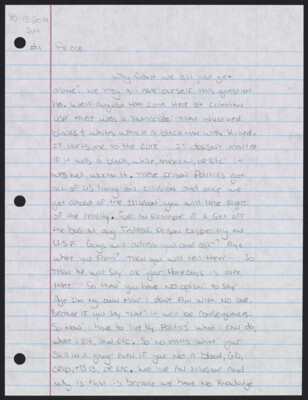 10-13-2019
Sun
#1 Peace
Why Can't we all just get
alone? We may all have ourself this question
ha. Well August 4th 2019 Here at Coleman
USP there was a Homicide that involved
blacks & whites which a blackman was killed.
It hurts me to the core. It doesn't matter
if it was a black, white, mexican, or etc it
was not worth it. These prison politics got
all of US living an illusion and once we
get ahold of the illusion you will lose sight
of the reality. For an example if I get off
the bus at any Federal Prison especially an
U.S.P Guys will address you and ask? "Aye
where you from" then you will tell them So
then he will say ok your Homeboys is over
that So then you have no option to say
Aye I'm my own man I don't run with no one.
Because if you say that it will be consequences.
So now I have to live by politics what I can do,
where I sit, and etc. So no matter what your
still in a gang even if your not a blood, GD,
crip, MS13, or etc. We live AN illusion and
why is that is because we have no knowledge